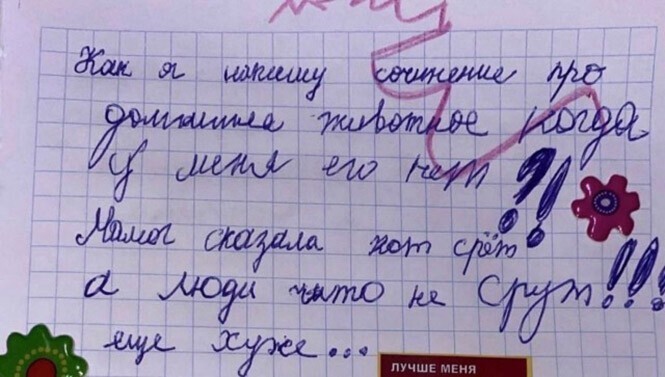 Как я напишу сочинение про
домашнеа животное когда
у меня его нет?!
Мамог сказала кот срёт
а люди чито не срут!!!
еще хуже...
ЛУЧШЕ МЕНЯ